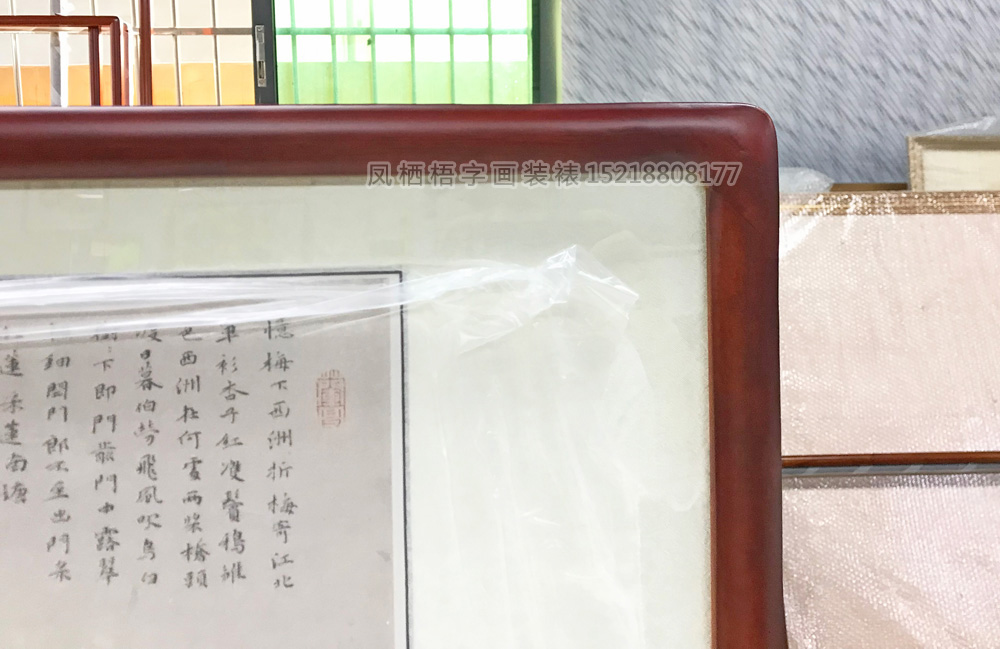 凤栖梧字画装裱 15218808177
憶梅下西洲折梅寄江北
單衫杏子紅雙鬢鴉雛
色西洲在何處兩槳橋頭
渡日暮伯勞飛風吹烏臼
樹下即門前門中露翠
鈿開門郎不至出門采
蓮采蓮南塘